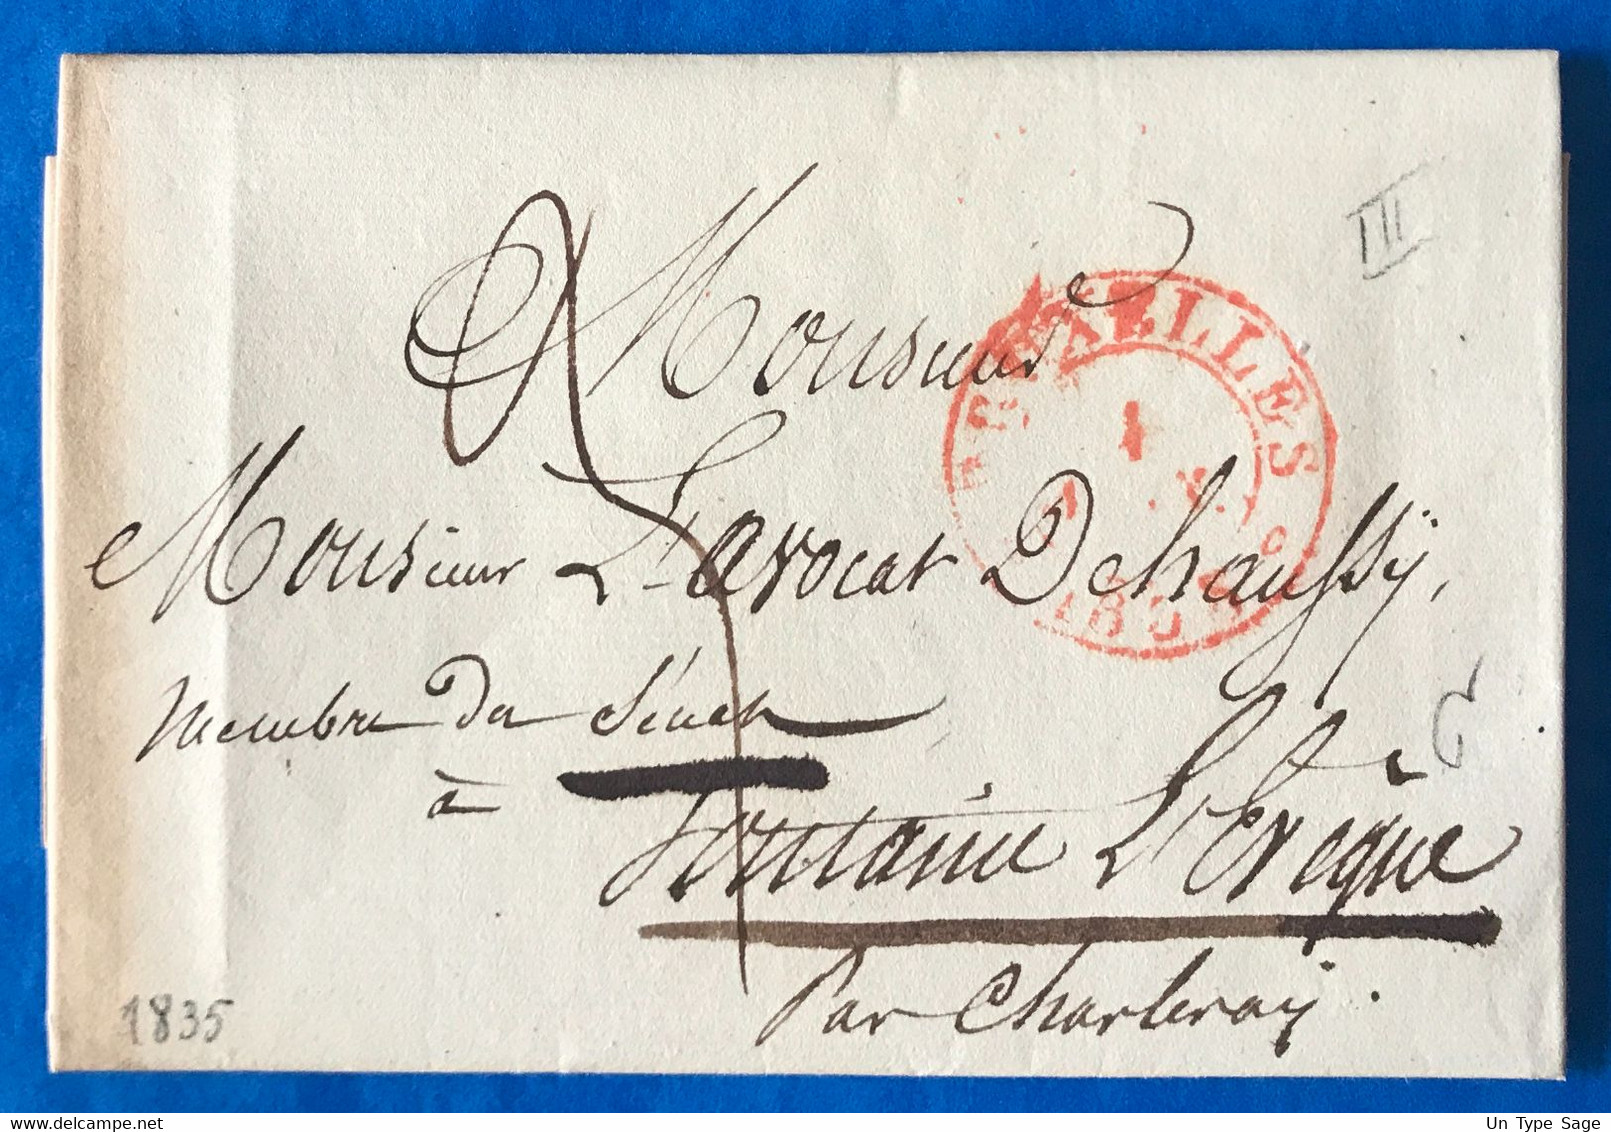 III
Monsieur
BRUXELLES
1
Monsieur L'avocat Dehaussÿ,
membre du Sénat
à Fontaine L'Evêque
Par Charleroÿ.
6
1835
Un Type Sage